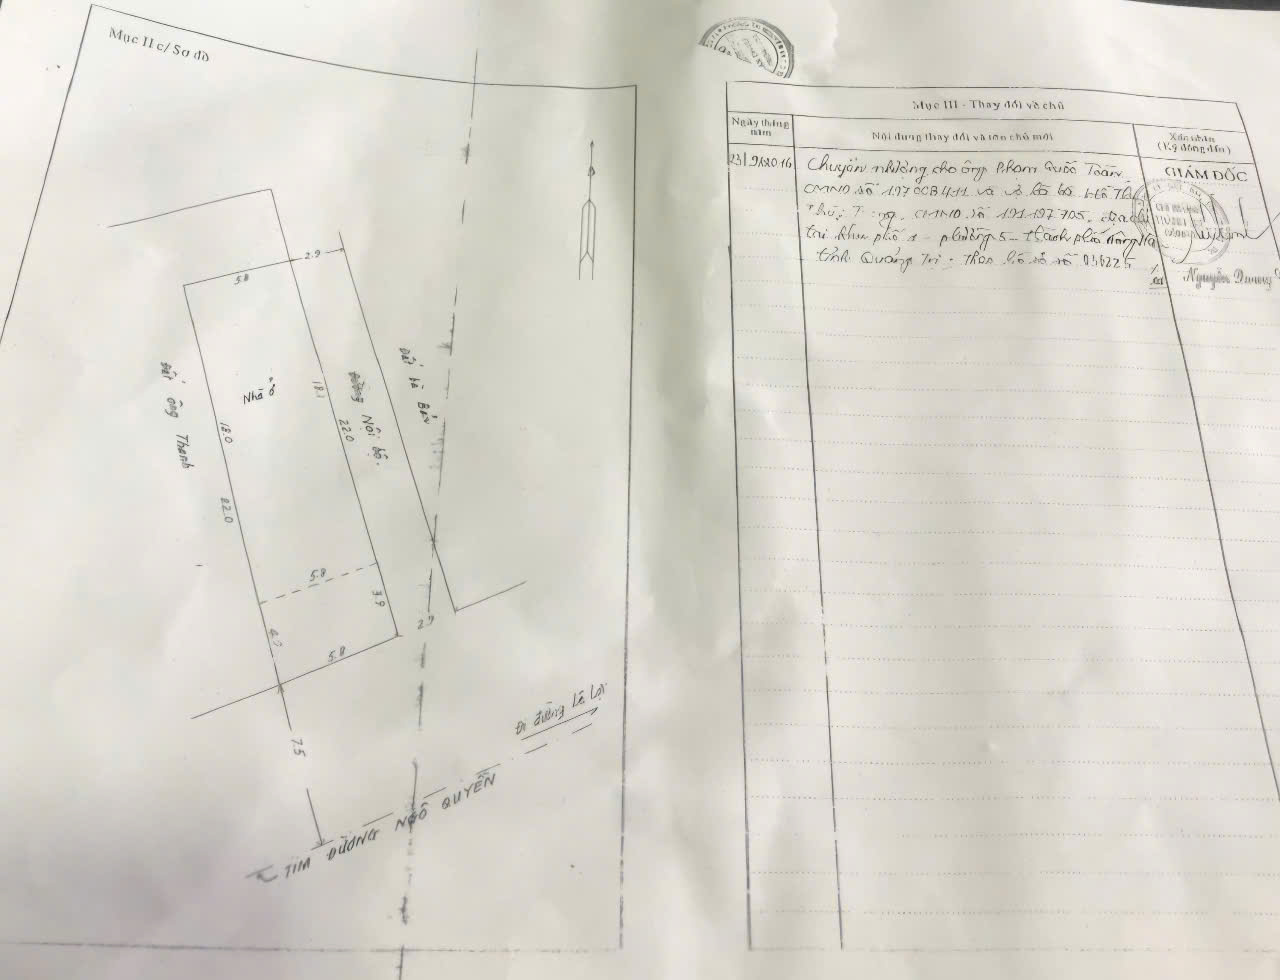 Mục II c/ Sơ đồ
2.9
5.8
Nhà ở
Đất ông Thanh
18.0
22.0
18.1
22.0
Đường Nội bộ.
Đất bà Bảy
5.8
3.9
5.8
2.9
7.5
Đi đường Lê Lợi
TIM ĐƯỜNG NGÔ QUYỀN
Mục III - Thay đổi về chủ
Ngày tháng năm
Nội dung thay đổi và tên chủ mới
Xác nhận
(Ký đóng dấu)
Chuyển nhượng cho ông Phạm Quốc Toàn
CMND số và vợ là bà Hồ Thị
CMND số 191197705, địa chỉ
tại khu phố 1 - phường 5 - thành phố Đông Hà
tỉnh Quảng Trị; Theo hồ sơ số
GIÁM ĐỐC
Nguyễn Dương